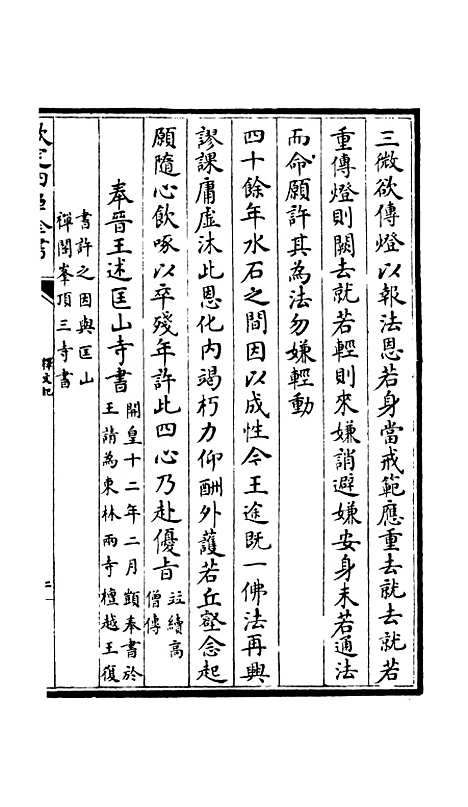 三微欲傳燈以報法恩若身當戒範應重去就去就若
重傳燈則闕去就若輕則來嫌誚避嫌安身未若通法
而命願許其為法勿嫌輕動
四十餘年水石之間因以成性今王途既一佛法再興
謬課庸虛沐此恩化内竭朽力仰酬外護若丘壑念起
願隨心飲啄以卒殘年許此四心乃赴優旨
並續高
僧傳
奉晉王述匡山寺書
開皇十二年二月顗奉書於
王請為東林兩寺檀越王復
書許之因與匡山
禪閣峯頂三寺書
欽定四庫全書
釋文紀